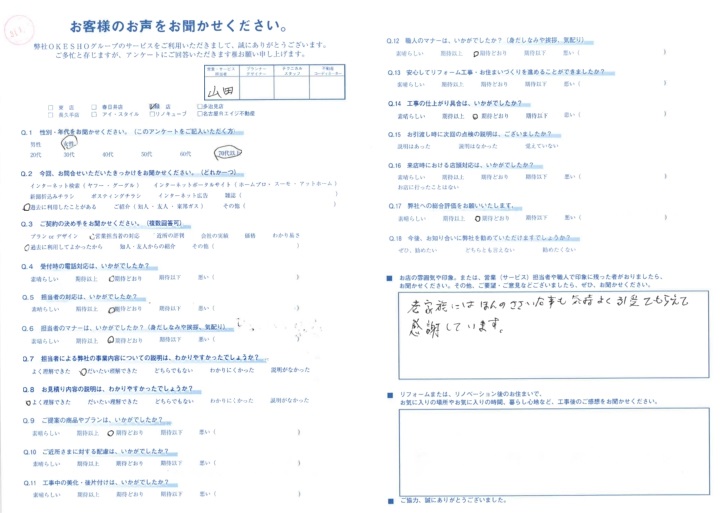 お客様のお声をお聞かせください。
弊社OKESHOグループのサービスをご利用いただきまして、誠にありがとうございます。
ご多忙と存じますが、アンケートにご回答いただきます様お願い申し上げます。
山田
□ 春日井店
店
□ 多治見店
□ 長久手店 □ アイ・スタイル □ リノキューブ □ 名古屋カエイジ不動産
Q.1 性別・年代をお聞かせください。(このアンケートをご記入いただく方)
男性 女性
20代 30代 40代 50代 60代 70代以上
Q.2 今回、お問合せいただいたきっかけをお聞かせください。(どれか一つ)
インターネット検索(ヤフー・グーグル) インターネットポータルサイト(ホームプロ・スーモ・アットホーム)
新聞折込みチラシ ポスティングチラシ インターネット広告 雑誌( )
過去に利用したことがある ご紹介(知人・友人・東邦ガス) その他( )
Q.3 ご契約の決め手をお聞かせください。(複数回答可)
プラン or デザイン 営業担当者の対応 近所の評判 会社の実績 価格 わかり易さ
過去に利用してよかったから 知人・友人からの紹介 その他( )
Q.4 受付時の電話対応は、いかがでしたか?
素晴らしい 期待以上 期待どおり 期待以下 悪い( )
Q.5 担当者の対応は、いかがでしたか?
素晴らしい 期待以上 期待どおり 期待以下 悪い( )
Q.6 担当者のマナーは、いかがでしたか?(身だしなみや挨拶、気配り)
素晴らしい 期待以上 期待どおり 期待以下 悪い( )
Q.7 担当者による弊社の事業内容についての説明は、わかりやすかったでしょうか?
よく理解できた だいたい理解できた どちらでもない わかりにくかった 説明がなかった
Q.8 お見積り内容の説明は、わかりやすかったでしょうか?
よく理解できた だいたい理解できた どちらでもない わかりにくかった 説明がなかった
Q.9 ご提案の商品やプランは、いかがでしたか?
素晴らしい 期待以上 期待どおり 期待以下 悪い( )
Q.10 ご近所さまに対する配慮は、いかがでしたか?
素晴らしい 期待以上 期待どおり 期待以下 悪い( )
Q.11 工事中の美化・後片付けは、いかがでしたか?
素晴らしい 期待以上 期待どおり 期待以下 悪い( )
Q.12 職人のマナーは、いかがでしたか?(身だしなみや挨拶、気配り)
素晴らしい 期待以上 期待どおり 期待以下 悪い( )
Q.13 安心してリフォーム工事・お住まいづくりを進めることができましたか?
素晴らしい 期待以上 期待どおり 期待以下 悪い( )
Q.14 工事の仕上がり具合は、いかがでしたか?
素晴らしい 期待以上 期待どおり 期待以下 悪い( )
Q.15 お引渡し時に次回の点検の説明は、ございましたか?
説明はあった 説明はなかった 覚えていない
Q.16 来店時における店舗対応は、いかがでしたか?
素晴らしい 期待以上 期待どおり 期待以下 悪い( )
お店に行ったことはない
Q.17 弊社への総合評価をお願いいたします。
素晴らしい 期待以上 期待どおり 期待以下 悪い( )
Q.18 今後、お知り合いに弊社を勧めていただけますでしょうか?
ぜひ、勧めたい どちらとも言えない 勧めたくない
■ お店の雰囲気や印象。または、営業(サービス)担当者や職人で印象に残った者がおりましたら、
お聞かせください。その他、ご要望・ご意見などございましたら、ぜひ、お聞かせください。
老家族にはほんのささいな事も気持よく引受てもらえて
感謝しています。
■ リフォームまたは、リノベーション後のお住まいで、
お気に入りの場所やお気に入りの時間、暮らし心地など、工事後のご感想をお聞かせください。
■ ご協力、誠にありがとうございました。